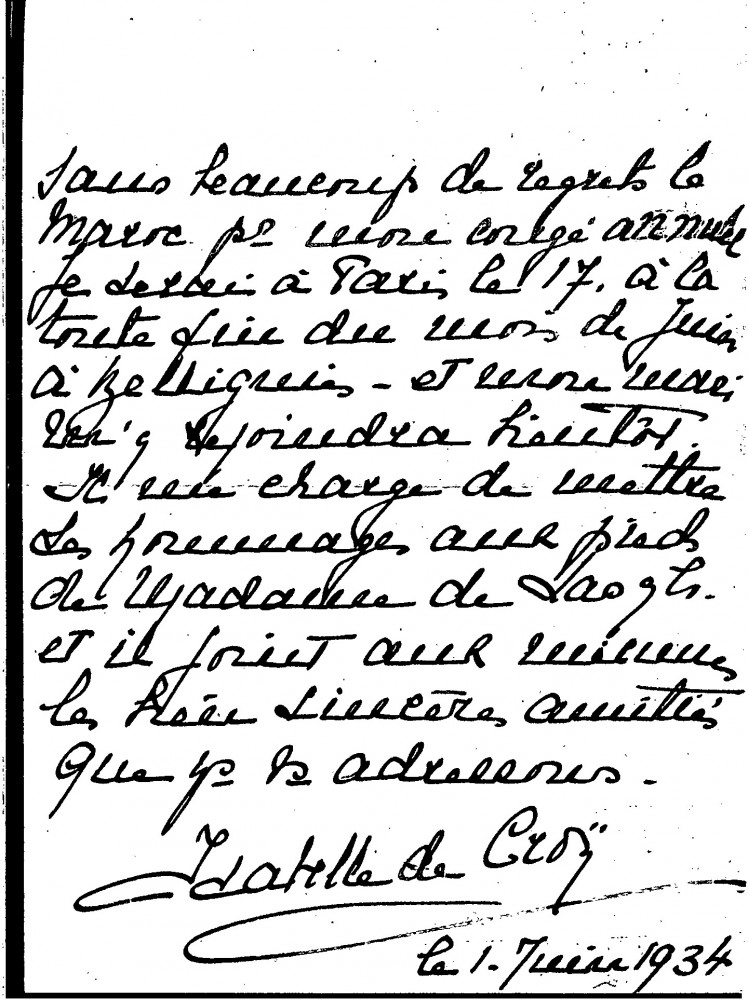 sans beaucoup de regrets le
Maroc pr mon congé annuel
Je serai à Paris le 17. à la
toute fin du mois de Juin
à Bellignies - et mon mari
m'y rejoindra bientôt.
Il me charge de mettre
ses hommages aux pieds
de Madame de
et il joint aux miennes
les bien sincères amitiés
que ns vs adressons.
Isabelle de Croÿ
le 1. Juin 1934